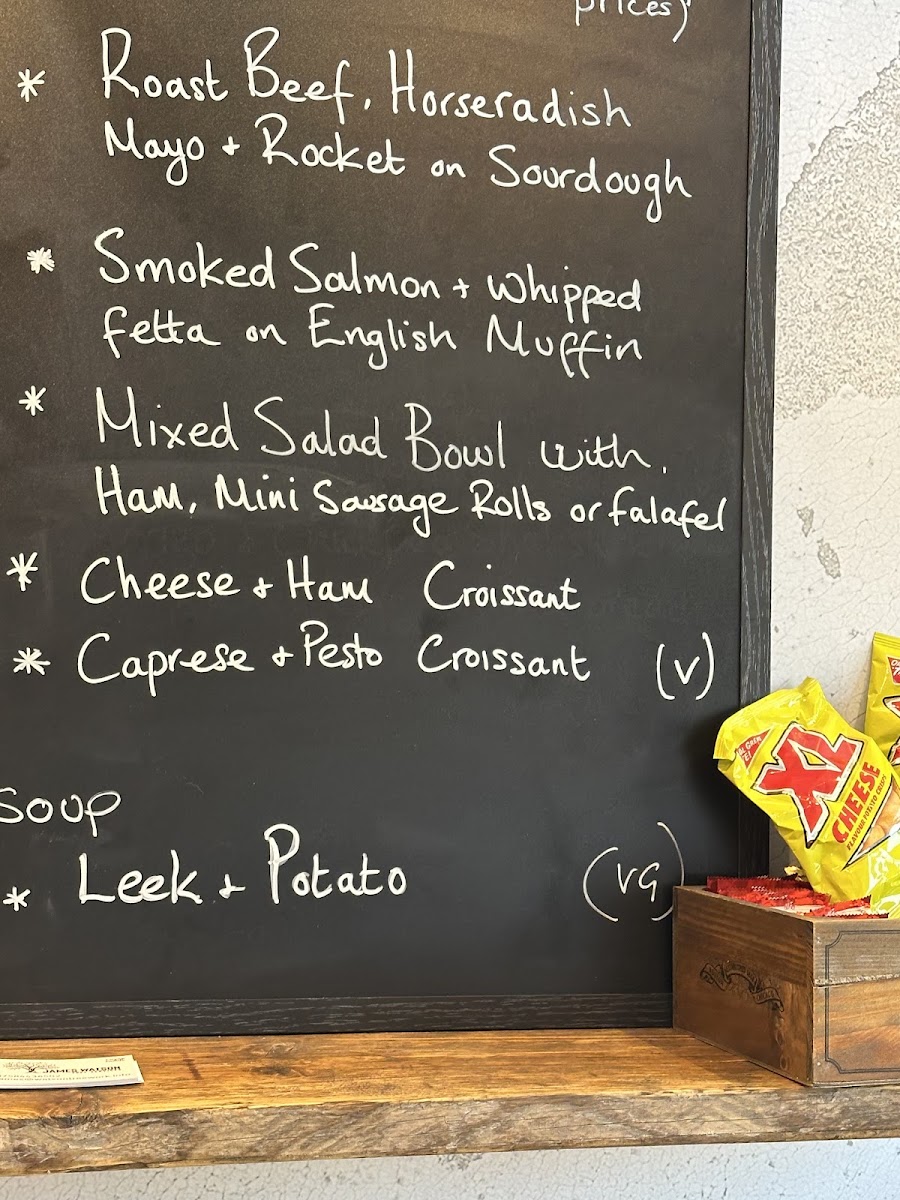 prices)
* Roast Beef, Horseradish
Mayo + Rocket on Sourdough
* Smoked Salmon + Whipped
fetta on English Muffin
* Mixed Salad Bowl with,
Ham, Mini Sausage Rolls or falafel
* Cheese + Ham Croissant
* Caprese + Pesto Croissant (V)
Soup
* Leek + Potato (vg)
XL
CHEESE
FLAVOUR POTATO CRISPS
JAMES WATSON